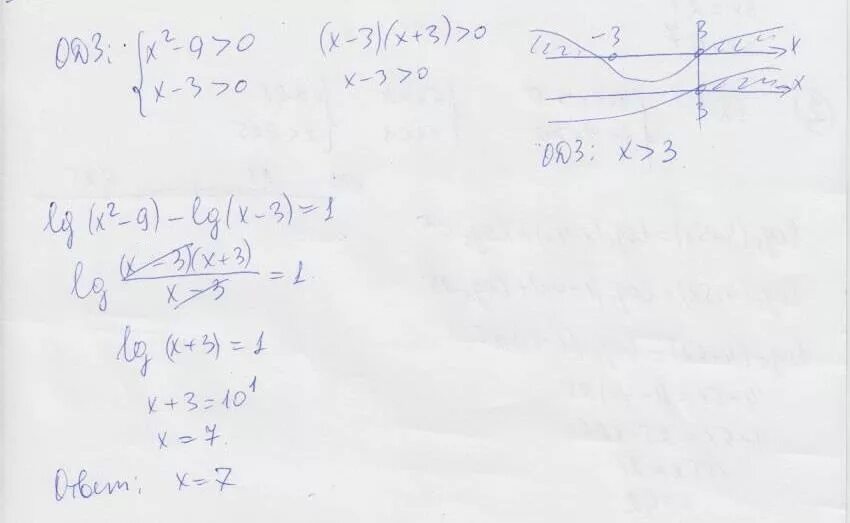 ОДЗ: { x² - 9 > 0 (x-3)(x+3) > 0
x - 3 > 0 x - 3 > 0
-3 3 x
x
3
ОДЗ: x > 3
lg (x² - 9) - lg (x - 3) = 1
lg (x - 3)(x + 3) / x - 3 = 1
lg (x + 3) = 1
x + 3 = 10¹
x = 7.
Ответ: x = 7